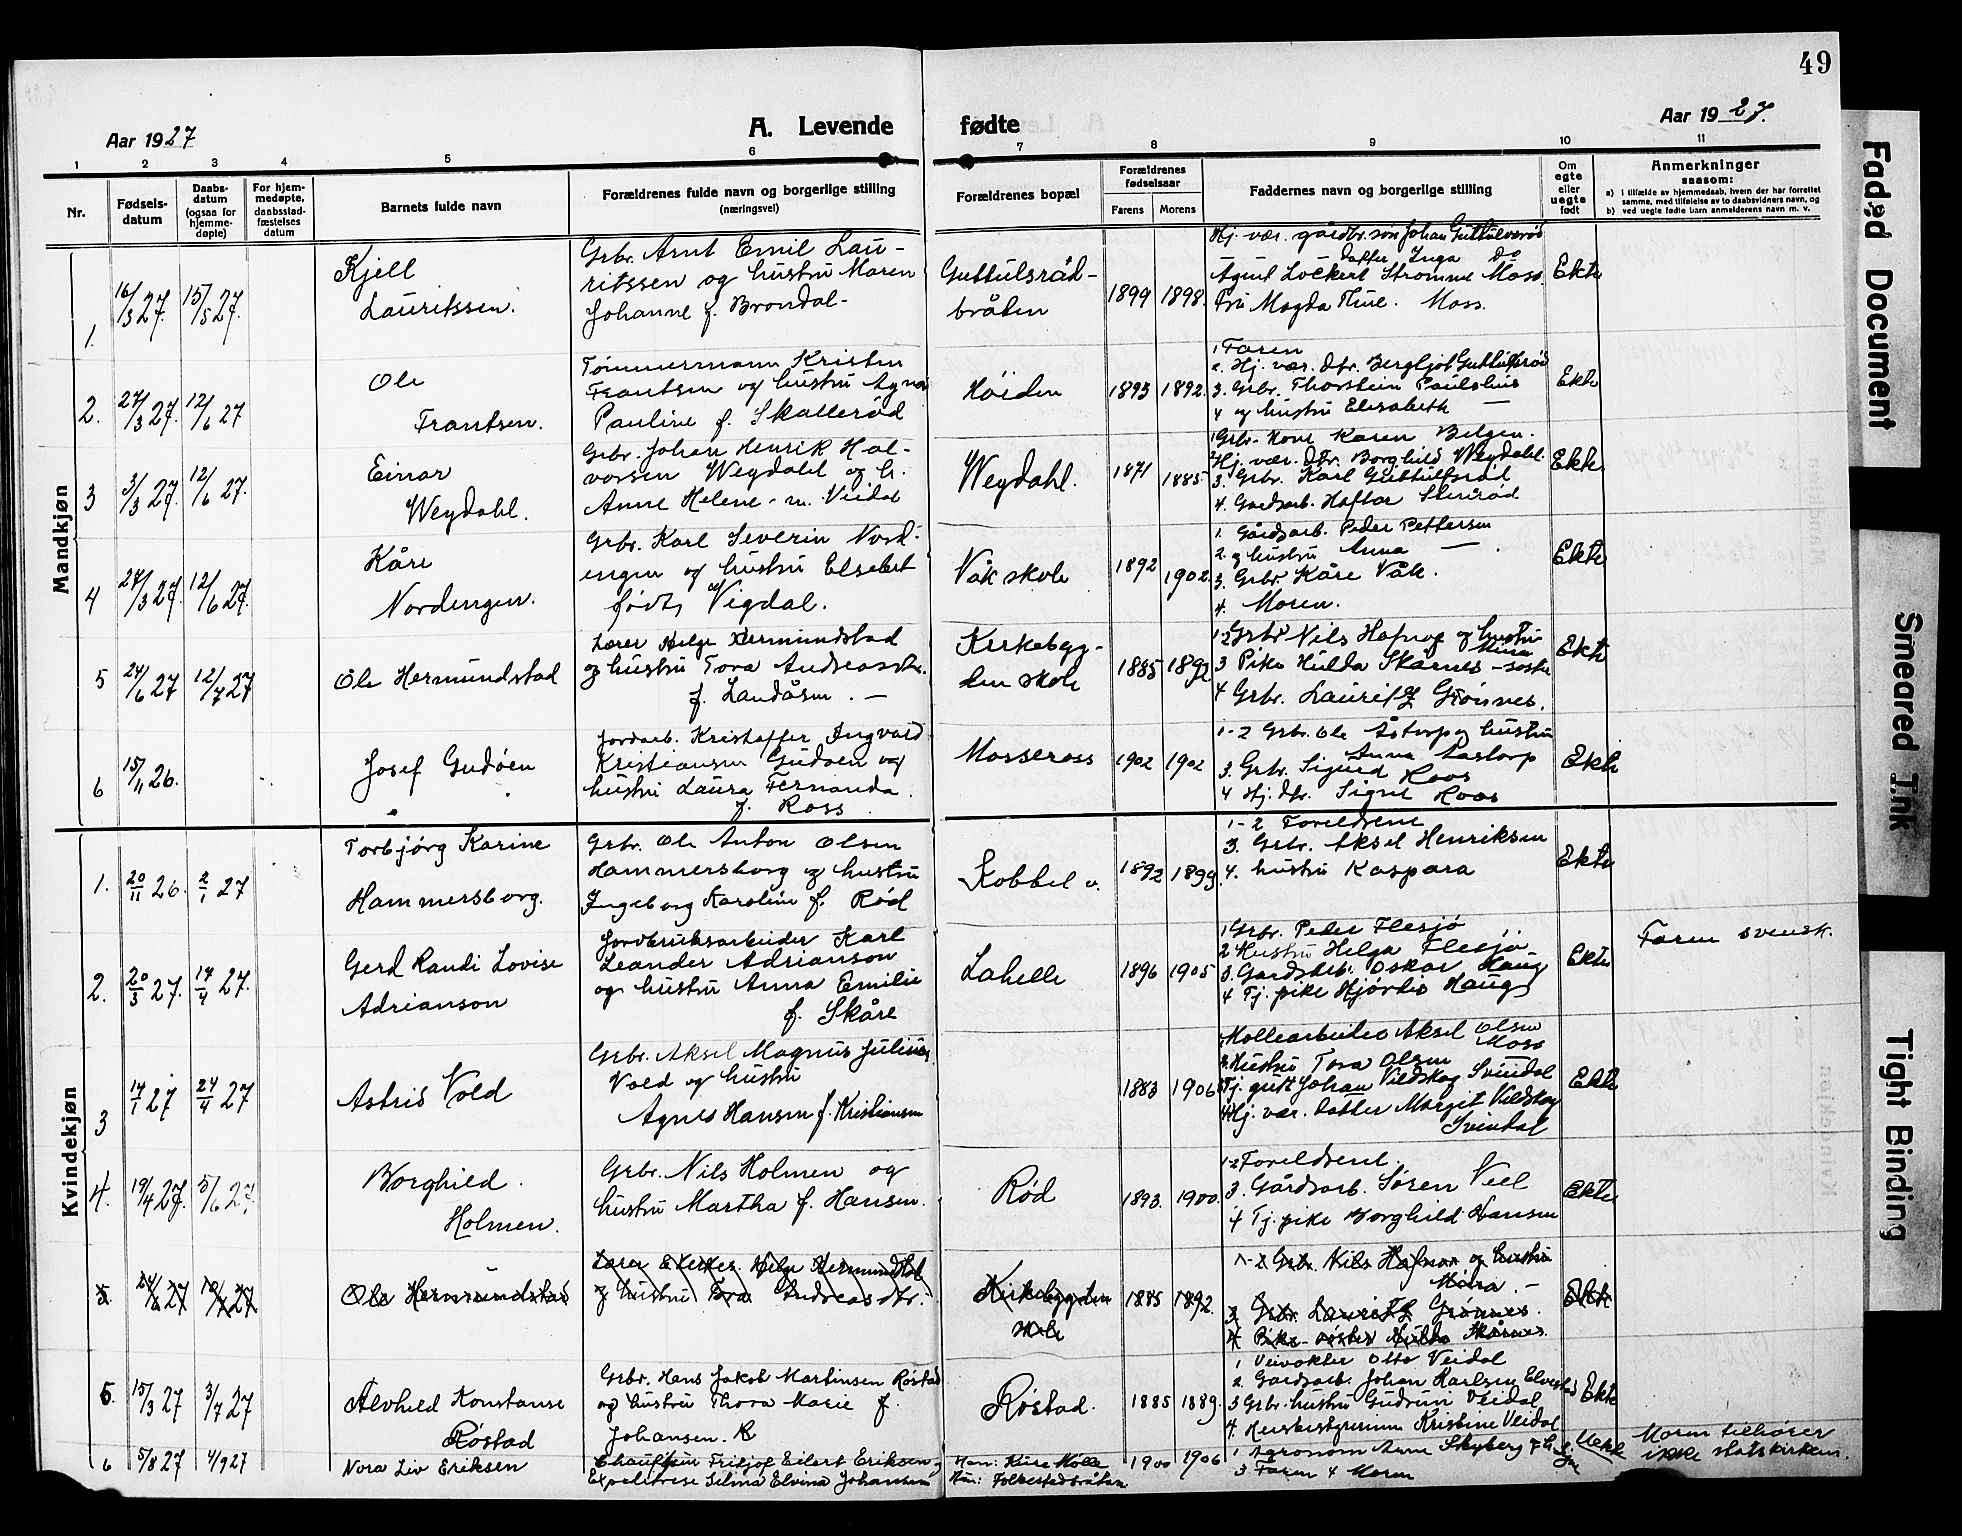 49
Aar 1927
A. Levende fødte
Aar 1927.
1 2 3 4 5 6 7 8 9 10 11
Nr.
Fødsels-
datum
Daabs-
datum
(ogsaa for
hjemme-
døpte)
For hjem-
medøpte,
daabsstad-
fæstelses
datum
Barnets fulde navn
Forældrenes fulde navn og borgerlige stilling
(næringsvei)
Forældrenes bopæl
Forældrenes
fødselsaar
Farens Morens
Faddernes navn og borgerlige stilling
Om
egte
eller
uegte
født
Anmerkninger
saasom:
a) i tilfælde av hjemmedaab, hvem der har forrettet
samme, med tilføielse av to daabsvidners navn, og
b) ved uegte fødte barn anmelderens navn m. v.
Mandkjøn
1. 16/3 27. 15/5 27.
Kjell
Lauritssen.
Grbr. Arnt Emil Lau-
ritssen og hustru Maren
Johanne f. Brondal-
Guttulsröd-
bråten
1899 1898.
Hj. vær. gårdbr. søn Johan Guttulsrød
datter Inga do
Agent Lockert Strømme Moss.
Fru Magda Thue. Moss.
Ekte
2. 27/3 27. 12/6 27
Ole
Frantsen.
Tømmermann Kristen
Frantsen og hustru Agnes
Pauline f. Skallerød
Høiden
1893 1892.
1 Faren
2. Hj. vær. dtr. Bergljot Guttulsrød
3. Grbr. Thorstein Paulshus
4 og hustru Elisabeth —
Ekte
3 3/3 27. 12/6 27.
Einar
Weydahl.
Grbr. Johan Henrik Hal-
vorsen Weydahl og h.
Anne Helene - m. Veidal
Weydahl.
1871 1885.
1 Grbr. kone Karen Bolgen.
2 Hj. vær. dtr. Borghild Weydahl.
3. Grbr. Karl Guttulsrød
4. Gardsarb. Haftor Stenrød
Ekte
4 27/3 27. 12/6 27.
Kåre
Nordengen.
Grbr. Karl Severin Nord-
engen og hustru Elsebet
født Vigdal.
Våk skole
1892 1902.
1. Gårdsarb. Peder Pettersen
2. og hustru Anna — .
3. Grbr. Kåre Våk.
4. Moren.
Ekte
5 24/6 27 12/7 27
Ole Hermundstad
Lærer Helge Hermundstad
og hustru Tora Andreasdtr.
f. Landåsen . —
Kirkebyg-
den skole
1885 1892.
1-2 Grbr Nils Hafnor og hustru
Mina
3 Pike Hulda Skårnes - søster
4 Grbr. Lauritz Grønnes.
Ekte
6 15/11 26.
Josef Gudøen
Jordarb. Kristoffer Ingvald
Kristiansen Gudøen og
hustru Laura Fernanda.
f. Ross
Mosseross
1902 1902
1-2 Grbr. Ole Åstorp og hustru
Anna Aastorp
3. Grbr. Sigurd Roos
4 Hj. dtr. Signe Roos
Ekte
Kvindekjøn
1. 20/11 26. 2/1 27
Torbjørg Karine
Hammersborg.
Grbr. Ole Anton Olsen
Hammersborg og hustru
Ingeborg Karoline f. Rød
Kobbel v.
1892 1899.
1-2 Foreldrene
3. Grbr. Aksel Henriksen
4. hustru Kaspara
Ekte
2. 20/3 27. 17/4 27.
Gerd Randi Lovise
Adrianson
Jordbruksarbeider Karl
Leander Adrianson
og hustru Anna Emilie
f. Skåre
Lahelle
1896 1905
1 Grbr. Peder Flesjø
2 Hustru Helga Flesjø
3. Gardsarb. Oskar Haug
4 Tj. pike Hjørdis Haug
Ekte
Faren svensk.
3 17/1 27 24/4 27
Astrid Vold
Grbr. Aksel Magnus Julius
Vold og hustru
Agnes Hansen f. Kristiansen
1883 1906
Møllearbeider Aksel Olsen
Moss
2. Hustru Tora Olsen
3 Tj. gutt Johan Vildskog Svindal
4 Hj. vær. datter Margit Vildskog
Svindal
Ekte
4. 19/4 27. 5/6 27.
Borghild.
Holmen.
Grbr. Nils Holmen og
hustru Martha f. Hansen.
Rød
1893. 1900.
1-2 Foreldrene.
3. Gårdsarb. Søren Viel
4 Tj. pike Borghild Hansen
Ekte
5 24/6 27 12/7 27
Ole Hermundstad
Lærer Helge Hermundstad
og hustru Tora Andreasdtr.
Kirkebygden
skole
1885 1892.
1-2 Grbr. Nils Hafnor og hustru
Mina. —
3 Grbr. Lauritz Grønnes.
4 Pike - søster Hulda Skårnes.
Ekte
5. 15/3 27 3/7 27
Alvhild Konstanse
Røstad
Grbr. Hans Jakob Martinsen Røstad
og hustru Thora Marie f.
Johansen. R
Røstad.
1885 1889.
1 Veivokter Otto Veidal
2. Gardsarb. Johan Karlsen Elvestad
3 Grbr. hustru Gudrun Veidal
4. Husbestyrerinne Kristine Veidal
Ekte
6 5/8 27 4/9 27
Nora Liv Eriksen
Chauffør Fritjof Eilert Eriksen
Expeditrise Selma Elvina Johansen
Han: Kure Mølle
Hun: Folkestadbråten
1900 1906
1 Agronom Arne Skyberg
3 Faren 4 Moren
Uekte
Moren tilhører
ikke statskirken.
Faded Document
Smeared Ink
Tight Binding